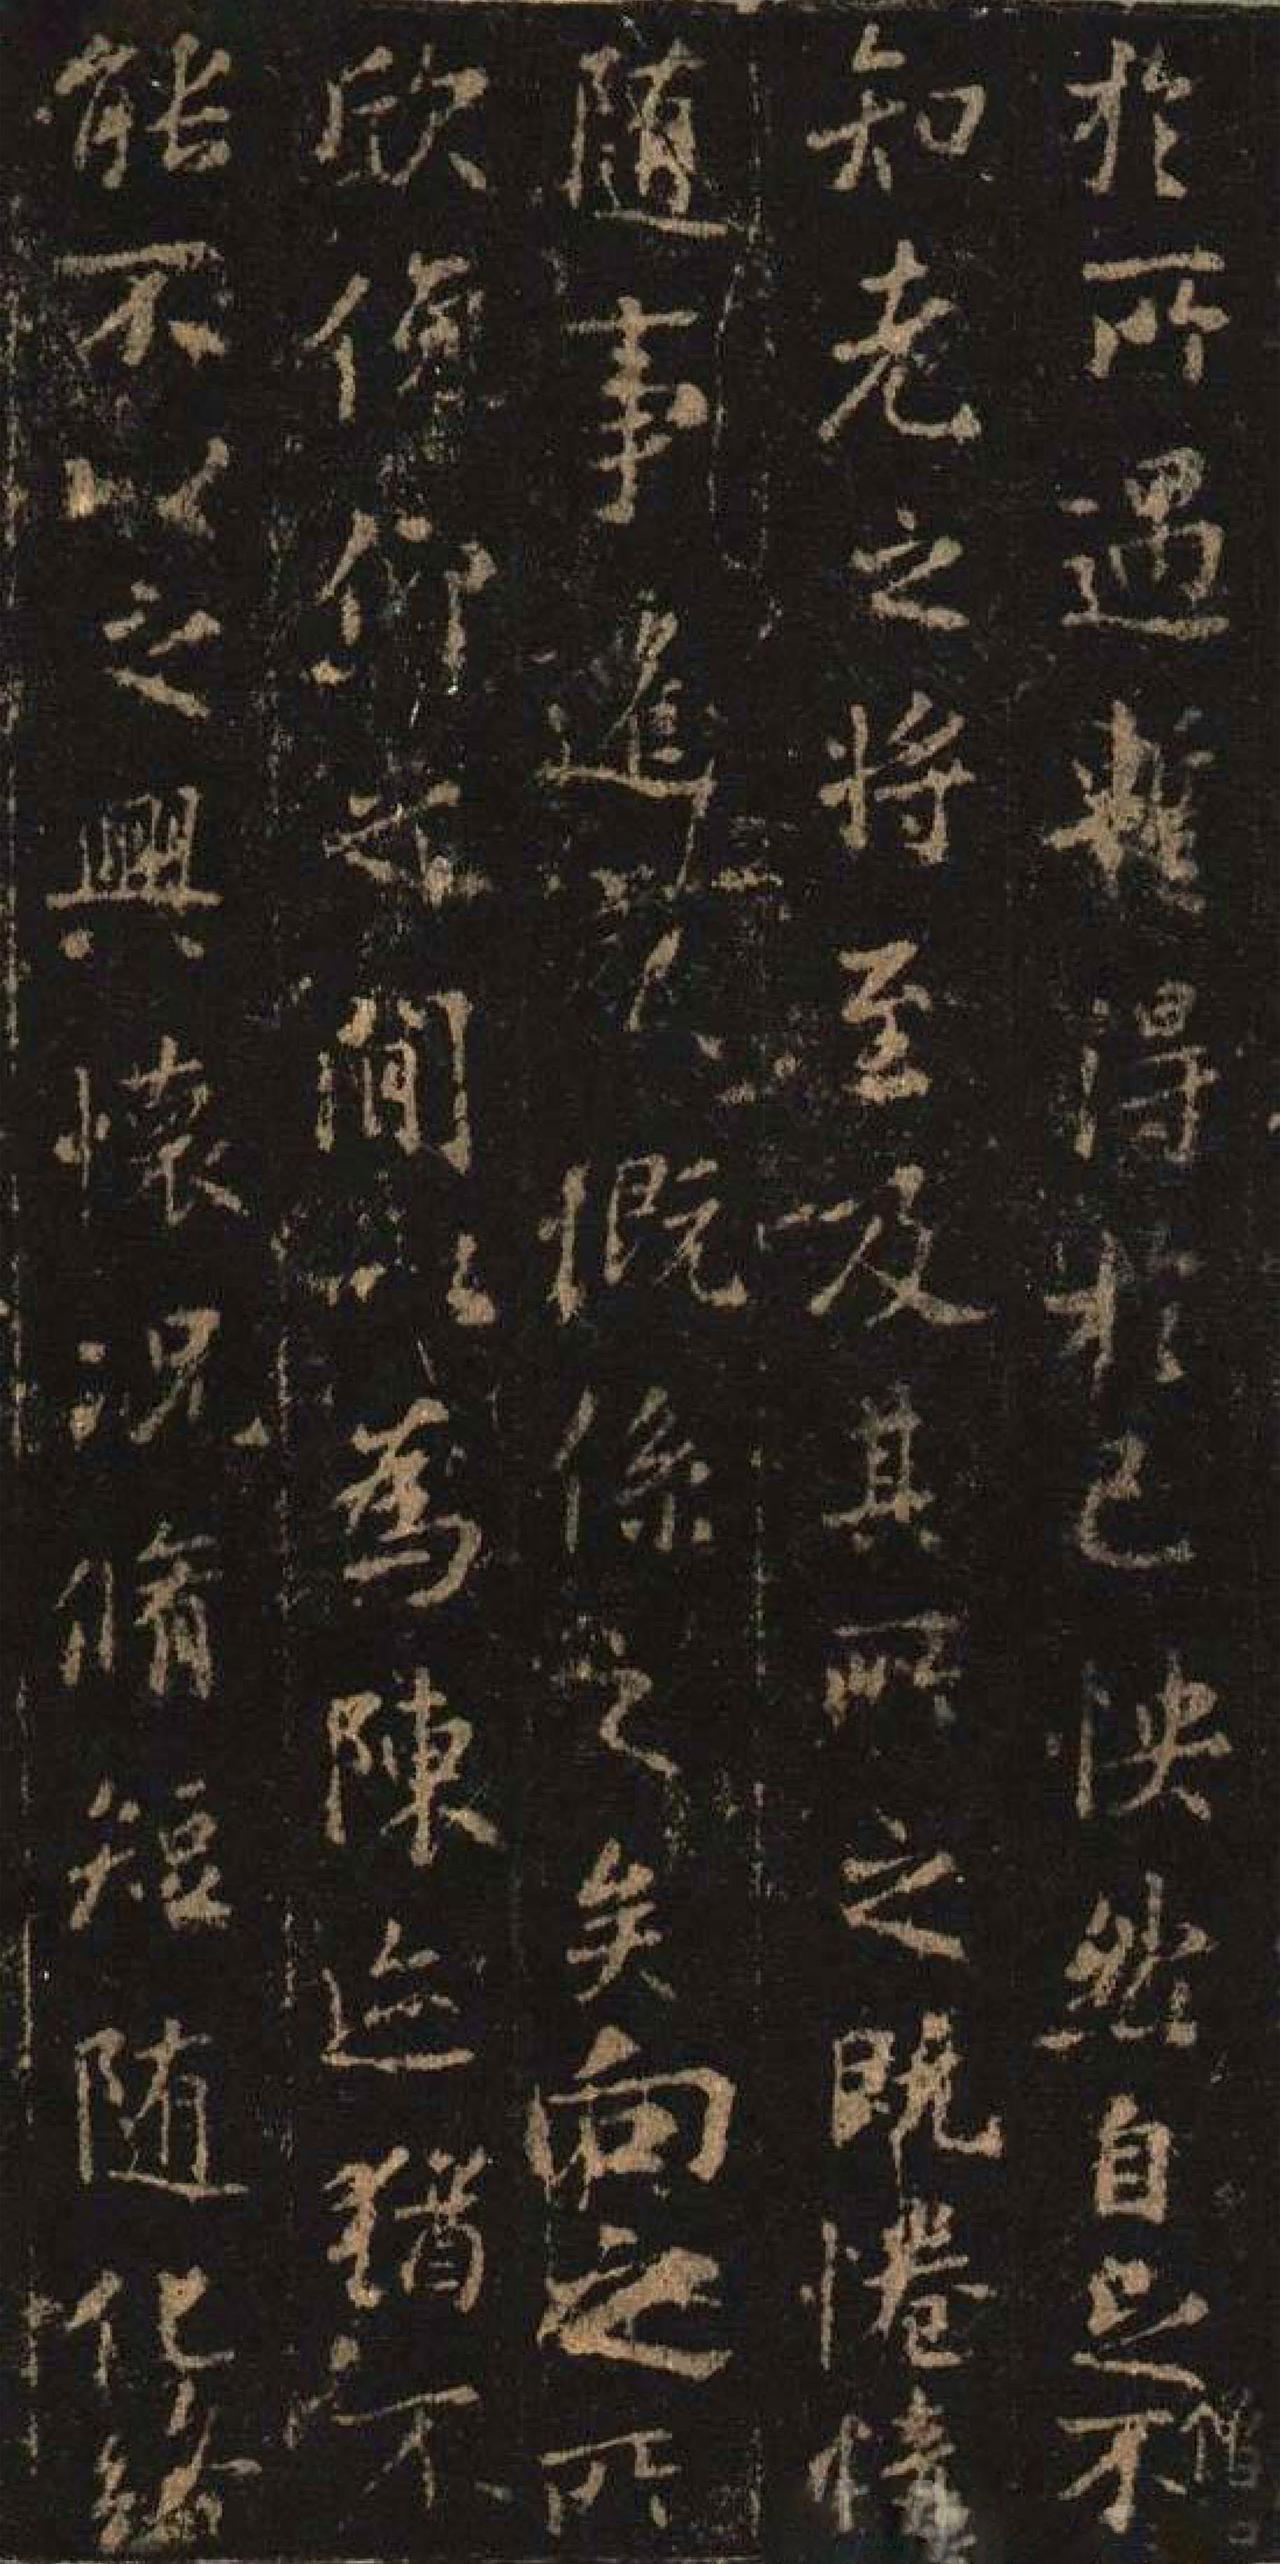 於所遇暫得於己怏然自足不
知老之將至及其所之既惓情
随事遷感慨係之矣向之所
欣俛仰之間以為陳迹猶不
能不以之興懷況脩短随化終